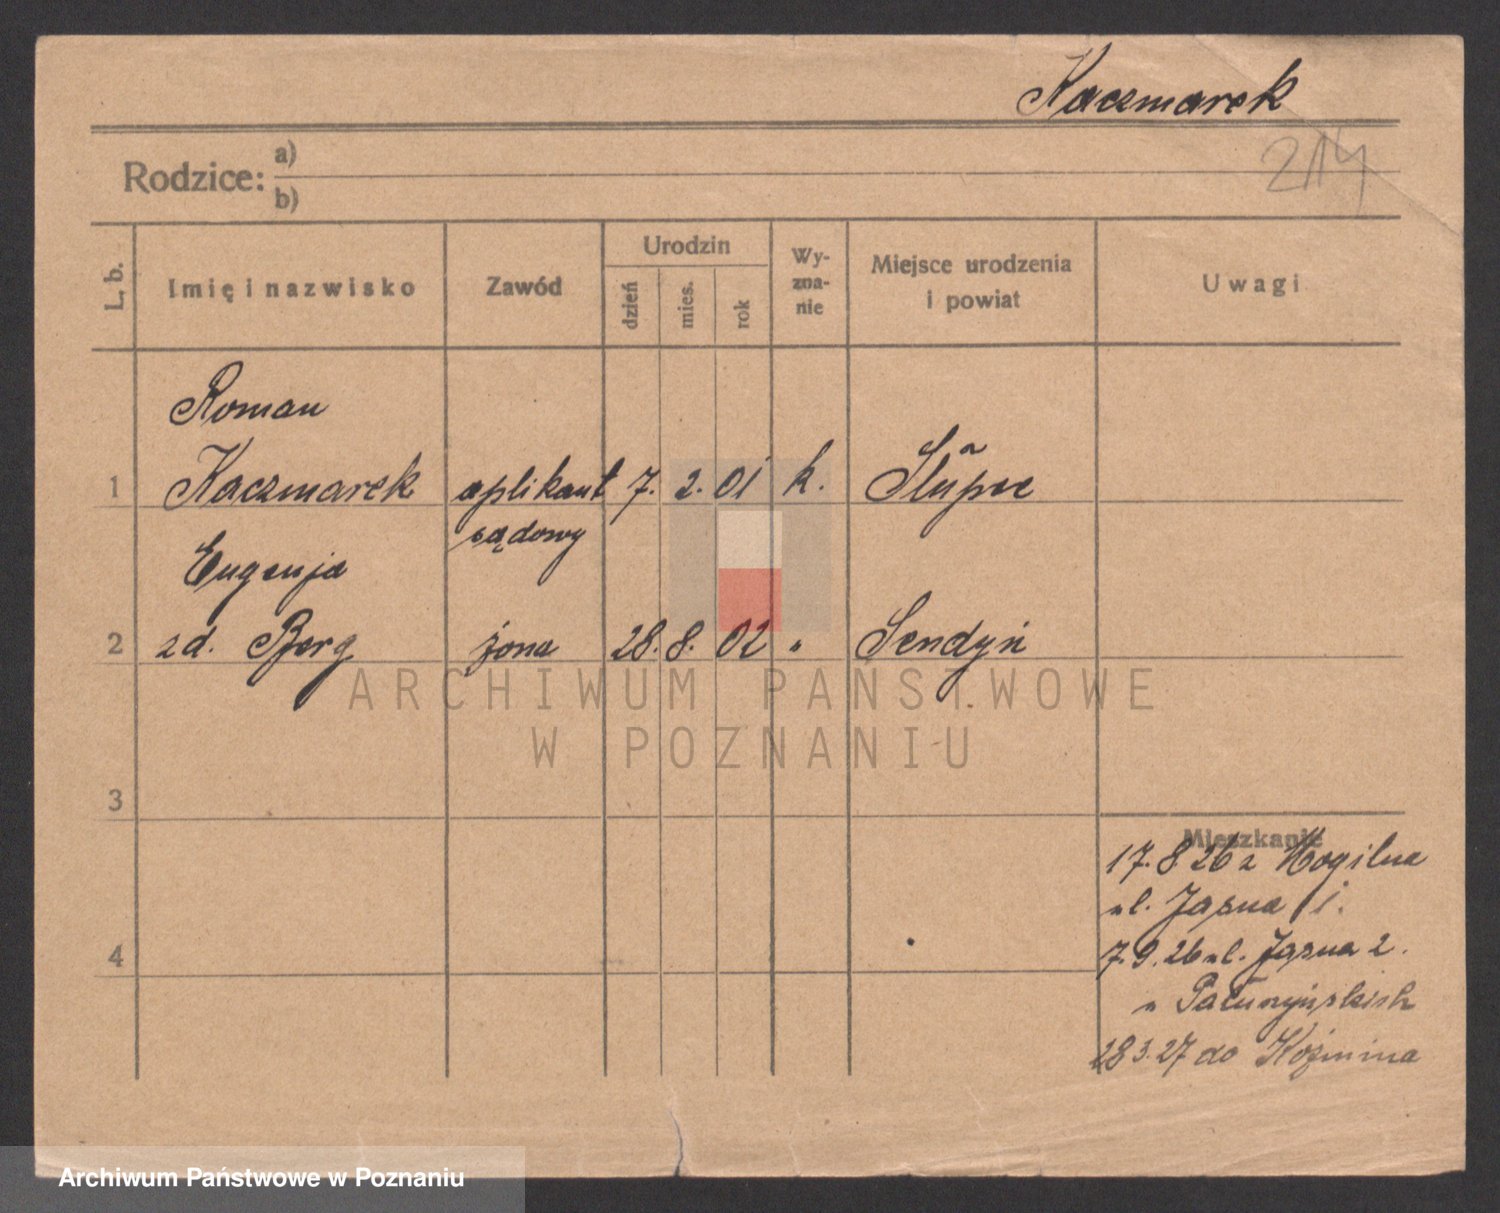 Kaczmarek
214
Rodzice: a)
b)
L. b. Imię i nazwisko Zawód Urodzin dzień mies. rok Wy-zna-nie Miejsce urodzenia i powiat Uwagi
Roman
1 Kaczmarek aplikant 7. 2. 01 k.
sądowy
Eugenja
2 zd. Berg żona 28. 8. 02 " Sendyń
3
4
Mieszkanie
17.8.26 z Mogilna
ul. Jasna 1.
7.9.26 ul. Jasna 2.
28 3.27 do Koźmina
ARCHIWUM PAŃSTWOWE
W POZNANIU
Archiwum Państwowe w Poznaniu